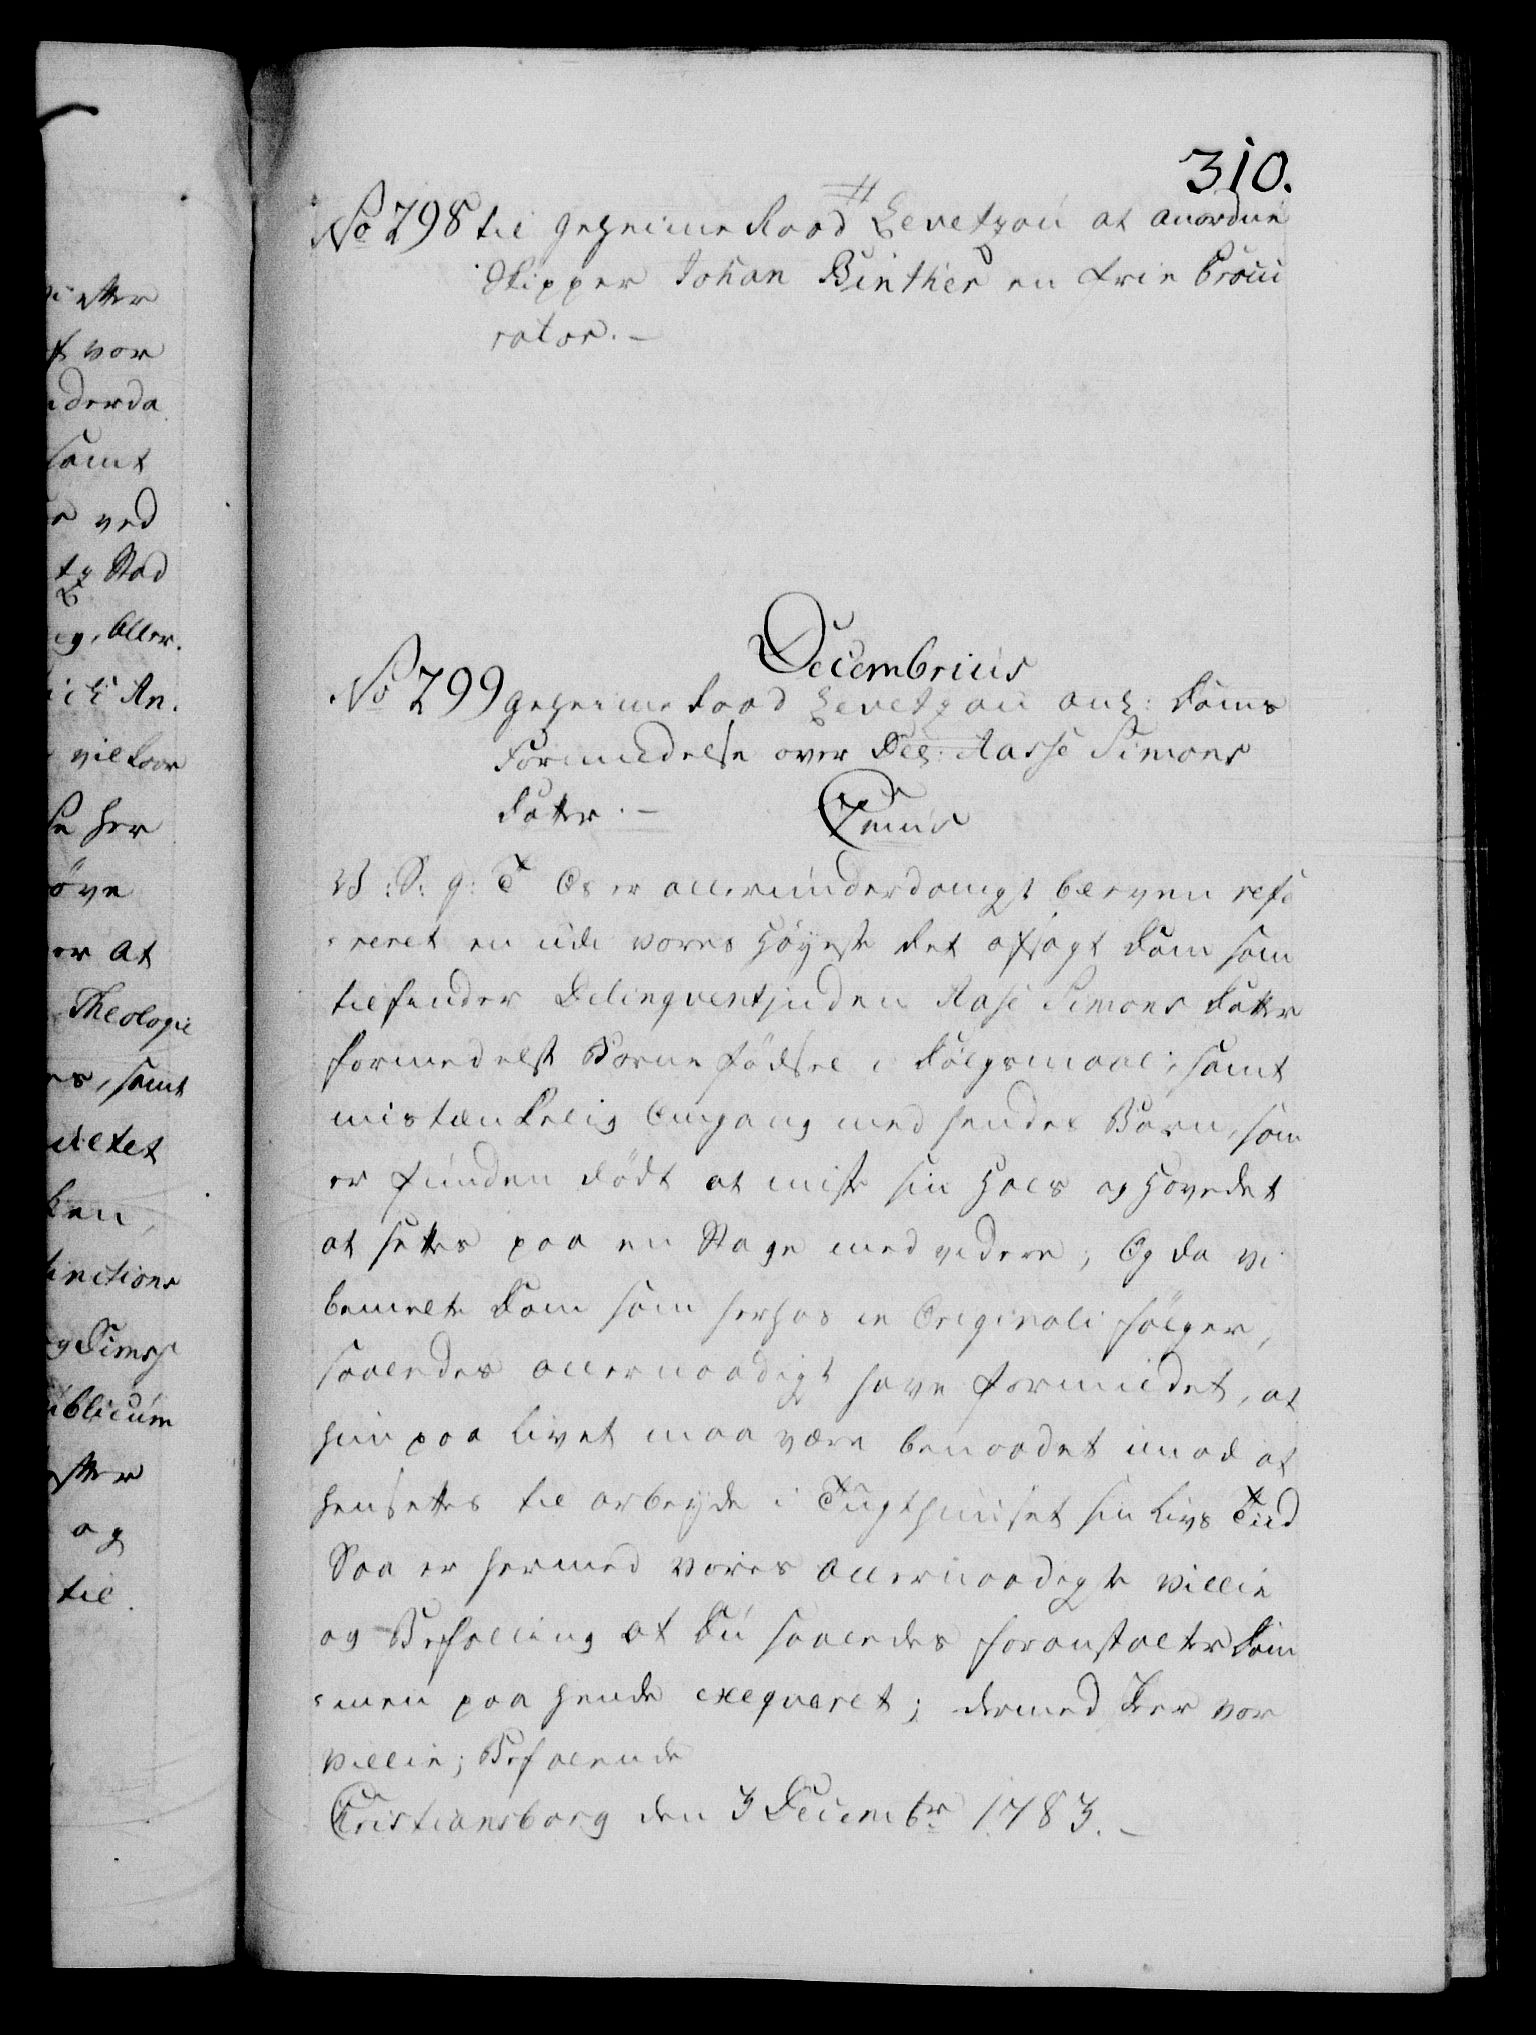 310.
No 298 til geheime Raad Levetzau at anordne
Skipper Johan Binther en frie Procu
rator. -
Decembrius
No 299 geheime Raad Levetzau anl: Doms
Formildelse over Del: Aasse Simons
datter. -
V: S: g: T Os er allerunderdanigst bleven refe
reret en udi vores Høyeste Ret afsagt Dom som
tilfinder Delinqventinden Aase Simons Datter
formedelst Barne fødsel i Dølgsmaal, samt
mistænkelig Omgang med hendes Barn, som
er funden dødt at miste sin Hals og Hovedet
at settes paa en Stage med videre, Og da vi
bemelte Dom som herhos in Originali følger,
saaledes allernaadigst have formildet, at
hun paa Livet maa være benaadet imod at
hensettes til arbeyde i Tugthuuset sin Livs Tiid
Saa er hermed vores allernaadigste villie
og Befalling at Du saaledes foranstalter Dom
men paa hende exeqveret; dermed skeer vor
villie; Befalende
Cristiansborg den 3 Decembr 1783. -
vor
samt
ved
Stad
her
at
Theologie
samt
og
til